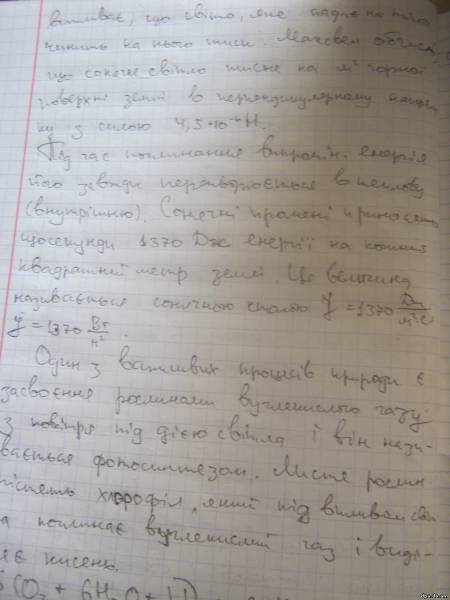 випливає, що світло, яке падає на тіло
чинить на нього тиск. Максвел обчислив,
що сонячне світло тисне на м² чорної
поверхні землі в перпендикулярному напрям
ку з силою 4,5*10⁻⁶ Н.
Під час поглинання випромін. енергія
його завжди перетворюється в теплову
(внутрішню). Сонячні промені приносять
щосекунди 1370 Дж енергії на кожний
квадратний метр землі. Ця величина
називається сонячною сталою y = 1370 Дж/м²·с
y = 1370 Вт/м².
Один з важливих процесів природи є
засвоєння рослинами вуглекислого газу
з повітря під дією світла і він нази-
вається фотосинтезом. Листя рослин
містить хлорофіл, який під впливом сві
а поглинає вуглекислий газ і виді-
ляє кисень.
CO₂ + 6H₂O +